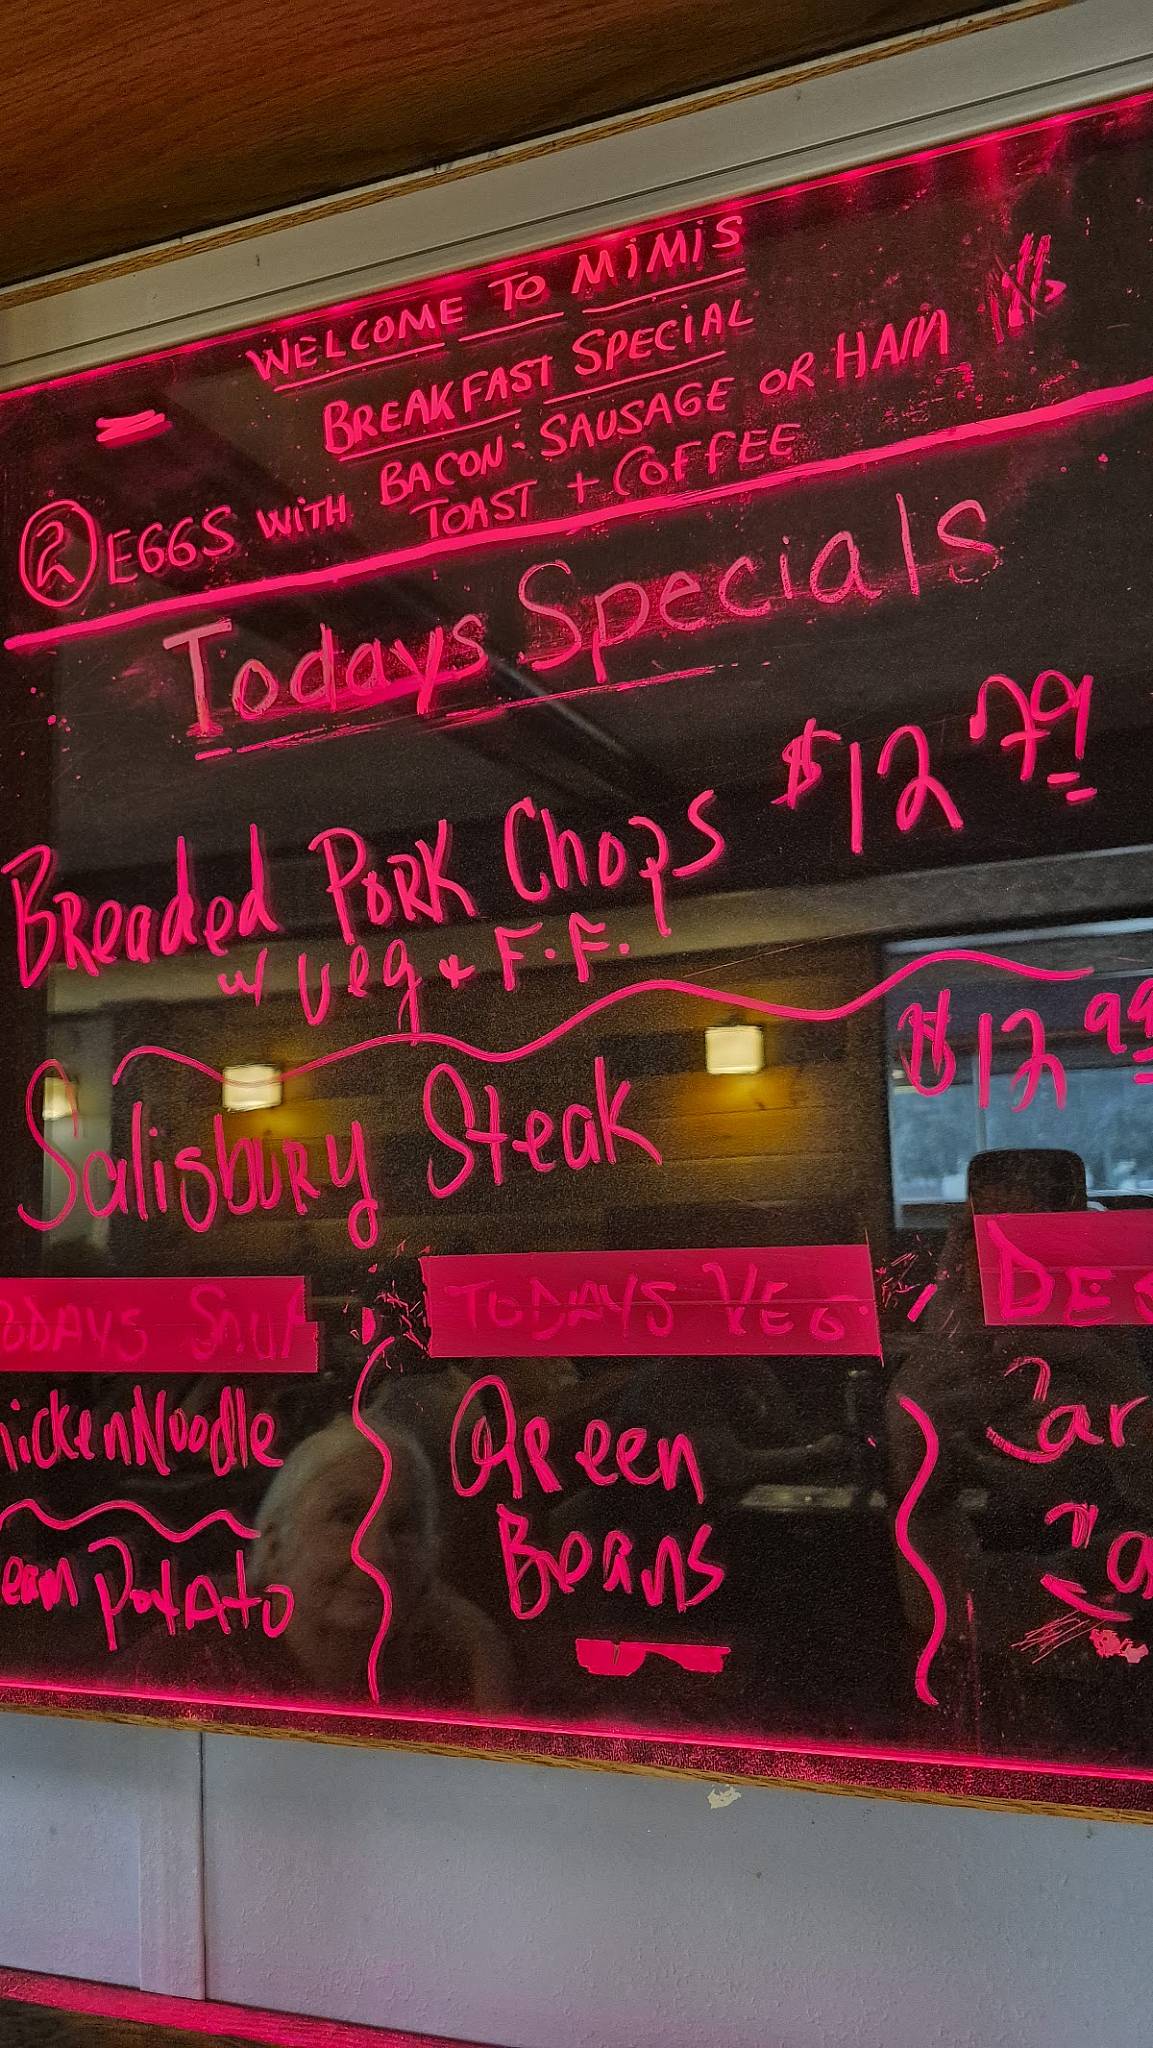 WELCOME TO MIMIS
BREAKFAST SPECIAL
② EGGS WITH BACON-SAUSAGE OR HAM
TOAST + COFFEE
Todays Specials
Breaded Pork Chops $12 79
w/ Veg + F.F.
$12 99
Salisbury Steak
TODAYS SOUP
hickenNoodle
eam Potato
TODAYS VEG.
Green
Beans
DES
Car